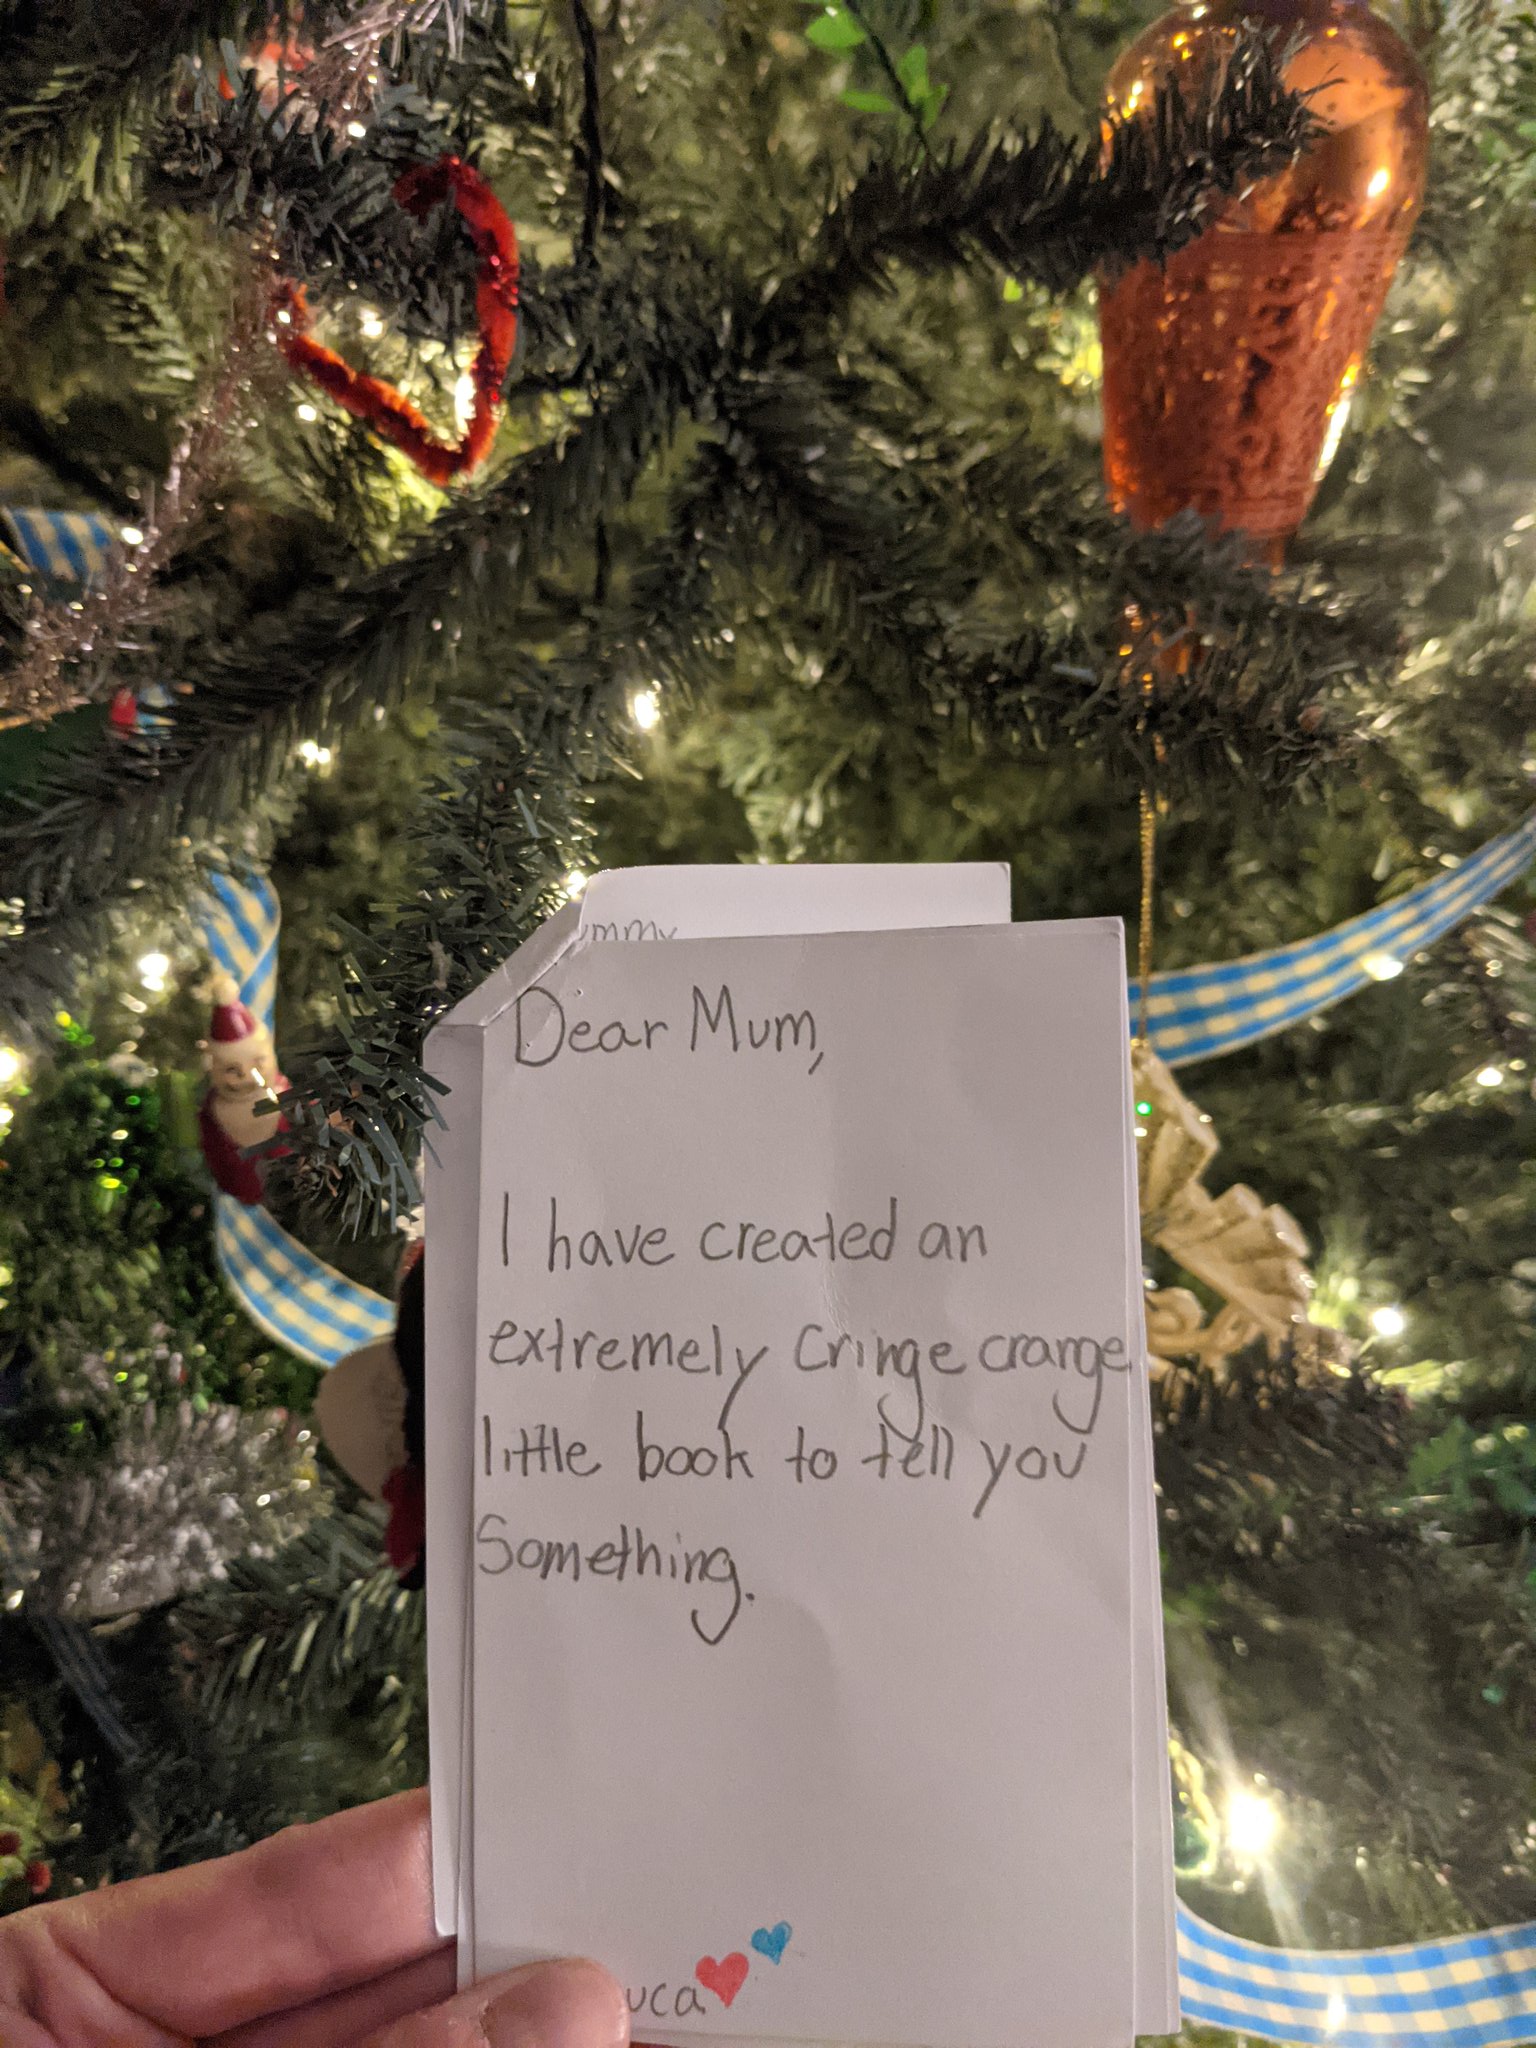 ummy
Dear Mum,
I have created an
extremely cringe crange
little book to tell you
Something.
uca